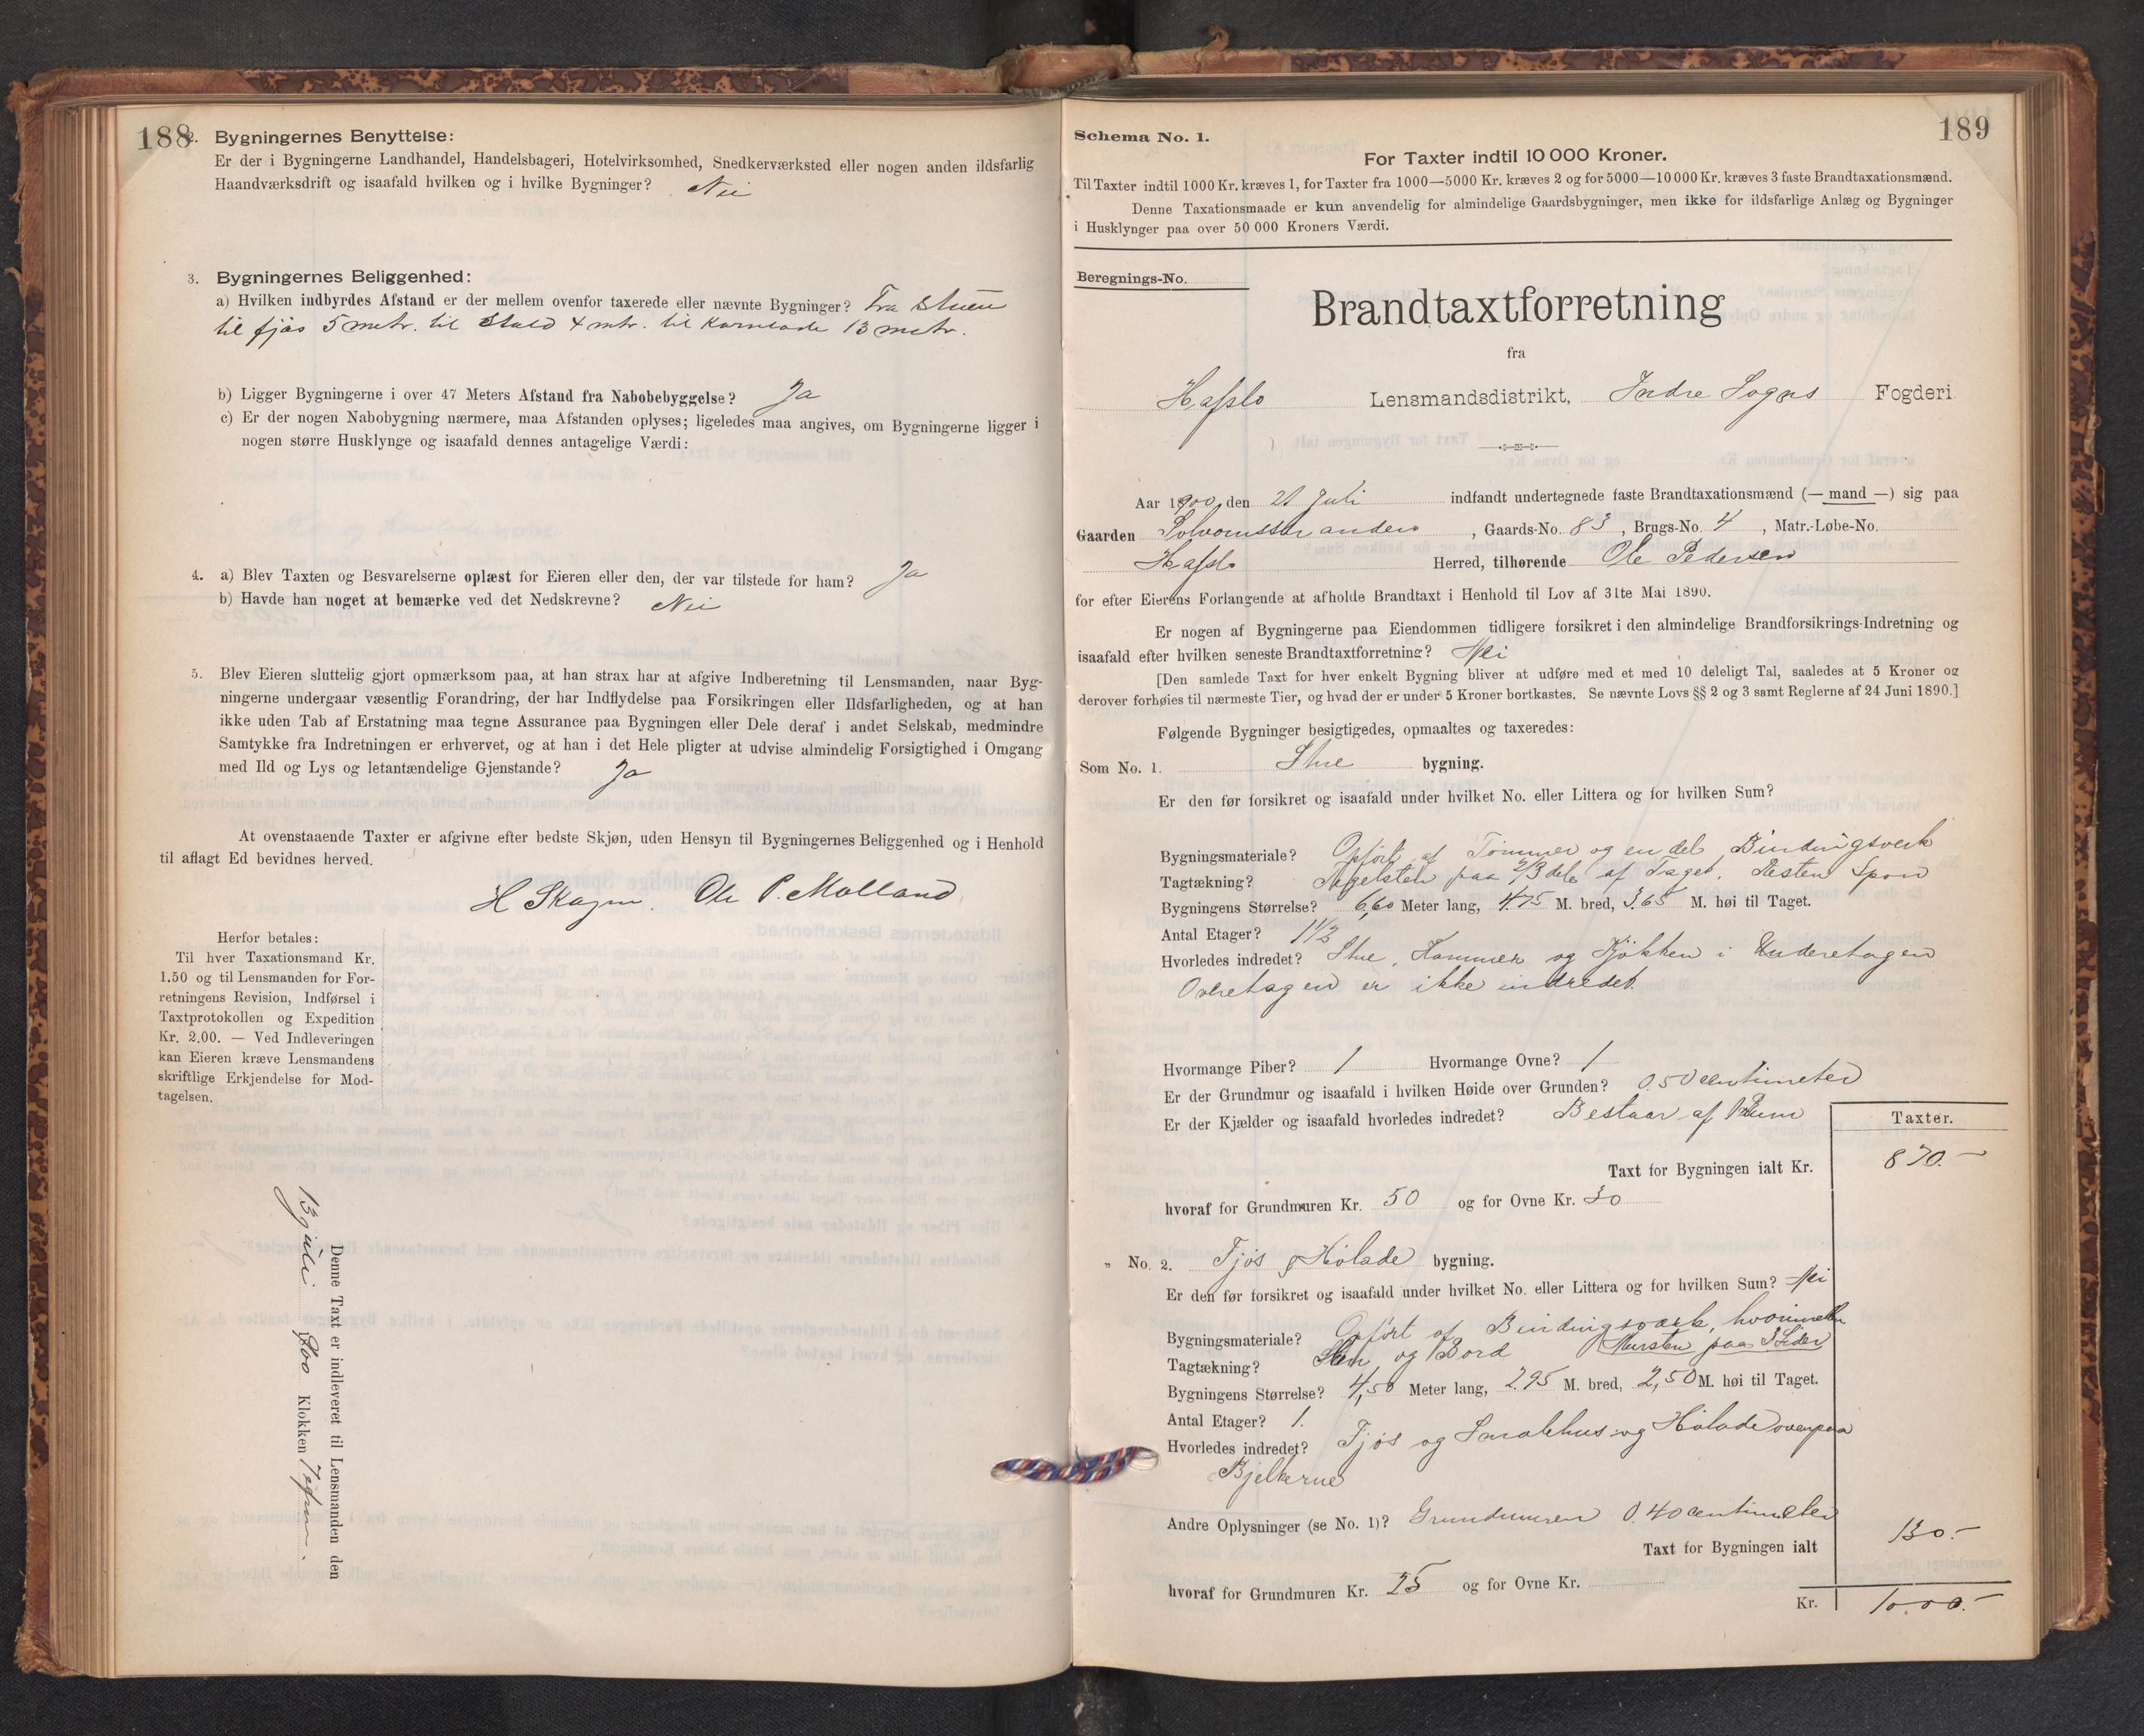 188
2. Bygningernes Benyttelse:
Er der i Bygningerne Landhandel, Handelsbageri, Hotelvirksomhed, Snedkerværksted eller nogen anden ildsfarlig
Haandværksdrift og isaafald hvilken og i hvilke Bygninger? Nei
3. Bygningernes Beliggenhed:
a) Hvilken indbyrdes Afstand er der mellem ovenfor taxerede eller nævnte Bygninger? Fra Stuen
til fjøs 5 metr. til Stald 4 mtr. til Kornlade 13 metr.
b) Ligger Bygningerne i over 47 Meters Afstand fra Nabobebyggelse? Ja
c) Er der nogen Nabobygning nærmere, maa Afstanden oplyses; ligeledes maa angives, om Bygningerne ligger i
nogen større Husklynge og isaafald dennes antagelige Værdi:
4. a) Blev Taxten og Besvarelserne oplæst for Eieren eller den, der var tilstede for ham? Ja
b) Havde han noget at bemærke ved det Nedskrevne? Nei
5. Blev Eieren sluttelig gjort opmærksom paa, at han strax har at afgive Indberetning til Lensmanden, naar Byg-
ningerne undergaar væsentlig Forandring, der har Indflydelse paa Forsikringen eller Ildsfarligheden, og at han
ikke uden Tab af Erstatning maa tegne Assurance paa Bygningen eller Dele deraf i andet Selskab, medmindre
Samtykke fra Indretningen er erhvervet, og at han i det Hele pligter at udvise almindelig Forsigtighed i Omgang
med Ild og Lys og letantændelige Gjenstande? Ja
At ovenstaaende Taxter er afgivne efter bedste Skjøn, uden Hensyn til Bygningernes Beliggenhed og i Henhold
til aflagt Ed bevidnes herved.
H Skagen. Ole P. Molland
Herfor betales:
Til hver Taxationsmand Kr.
1.50 og til Lensmanden for For-
retningens Revision, Indførsel i
Taxtprotokollen og Expedition
Kr. 2.00. — Ved Indleveringen
kan Eieren kræve Lensmandens
skriftlige Erkjendelse for Mod-
tagelsen.
Denne Taxt er indleveret til Lensmanden den
13 juli 1900 Klokken 7 efm.
189
Schema No. 1.
For Taxter indtil 10 000 Kroner.
Til Taxter indtil 1000 Kr. kræves 1, for Taxter fra 1000—5000 Kr. kræves 2 og for 5000—10 000 Kr. kræves 3 faste Brandtaxationsmænd.
Denne Taxationsmaade er kun anvendelig for almindelige Gaardsbygninger, men ikke for ildsfarlige Anlæg og Bygninger
i Husklynger paa over 50 000 Kroners Værdi.
Beregnings-No.
Brandtaxtforretning
fra
Hafslo Lensmandsdistrikt, Indre Sogns Fogderi
Aar 1900, den 21 Juli indfandt undertegnede faste Brandtaxationsmænd (— mand —) sig paa
Gaarden Solvornsstranden, Gaards-No. 83, Brugs-No. 4, Matr.-Løbe-No.
Hafslo Herred, tilhørende Ole Pedersen
for efter Eierens Forlangende at afholde Brandtaxt i Henhold til Lov af 31te Mai 1890.
Er nogen af Bygningerne paa Eiendommen tidligere forsikret i den almindelige Brandforsikrings-Indretning og
isaafald efter hvilken seneste Brandtaxtforretning? Nei
[Den samlede Taxt for hver enkelt Bygning bliver at udføre med et med 10 deleligt Tal, saaledes at 5 Kroner og
derover forhøies til nærmeste Tier, og hvad der er under 5 Kroner bortkastes. Se nævnte Lovs §§ 2 og 3 samt Reglerne af 24 Juni 1890.]
Følgende Bygninger besigtigedes, opmaaltes og taxeredes:
Som No. 1. Stue bygning.
Er den før forsikret og isaafald under hvilket No. eller Littera og for hvilken Sum?
Bygningsmateriale? Opført af Tømmer og en del Bindingsverk
Tagtækning? Tagelsten paa 2/3 dele af Taget. Resten Spon
Bygningens Størrelse? 6,60 Meter lang, 4.75 M. bred, 3.65 M. høi til Taget.
Antal Etager? 1 1/2
Hvorledes indredet? Stue, Kammer og Kjøkken i Underetagen
Overetagen er ikke indredet
Hvormange Piber? 1 Hvormange Ovne? 1
Er der Grundmur og isaafald i hvilken Høide over Grunden? 0.50 centimeter
Er der Kjælder og isaafald hvorledes indredet? Bestaar af 1 Rum
Taxter.
Taxt for Bygningen ialt Kr. 870.—
hvoraf for Grundmuren Kr. 50 og for Ovne Kr. 30
„ No. 2. Fjøs & Hølade bygning.
Er den før forsikret og isaafald under hvilket No. eller Littera og for hvilken Sum? Nei
Bygningsmateriale? Opført af Bindingsverk, hvorimellem
Mursten paa 3 Sider
Tagtækning? Sten og Bord
Bygningens Størrelse? 4,50 Meter lang, 2.95 M. bred, 2,50 M. høi til Taget.
Antal Etager? 1.
Hvorledes indredet? Fjøs og Smalehus og Hølade ovenpaa
Bjelkerne
Andre Oplysninger (se No. 1)? Grundmuren 0.40 centimeter
Taxt for Bygningen ialt 130.—
hvoraf for Grundmuren Kr. 25 og for Ovne Kr.
Kr. 1000.—